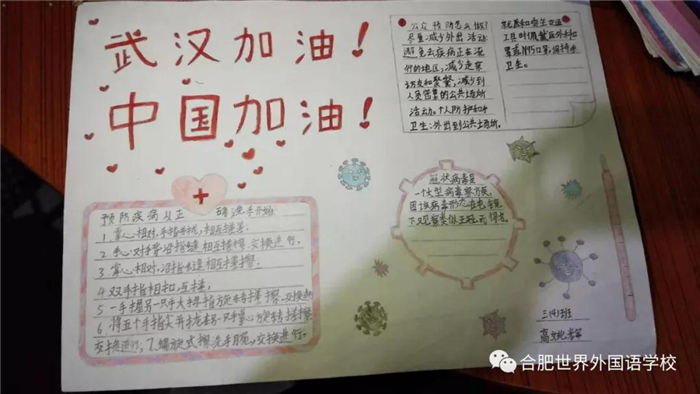 武汉加油！
中国加油！
公众预防怎么做?
尽量减少外出活动
避免去疾病正在流
行的地区,减少走亲
访友和聚餐,减少到
人员密集的公共场所
活动。个人防护和手
卫生:外出到公共场所、
就医和乘坐公交
工具时,佩戴医外科口
罩或N95口罩,保持手
卫生。
冠状病毒是
一个大型病毒家族,
因该病毒形态在电镜
下观察类似王冠而得名。
预防疾病从正确洗手开始
1.掌心相对,手指并拢,相互揉搓。
2.手心对手背沿指缝相互揉搓,交换进行。
3.掌心相对,沿指缝相互揉搓。
4.双手指相扣,互搓。
5.一手握另一只手大拇指旋转揉搓,交换进行
6.将五个手指尖并拢在另一只手掌心旋转揉搓,
交换进行,7.螺旋式擦洗手腕,交换进行。
三(4)班
合肥世界外国语学校